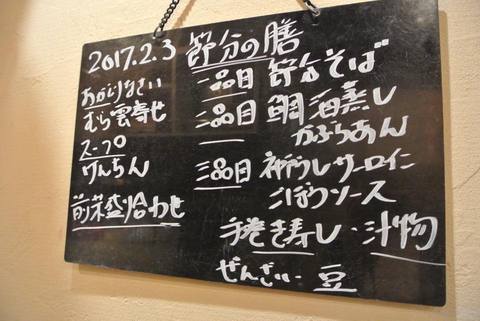 2017.2.3 節分の膳
おかえりなさい
むら雲寄せ
スープ
けんちん
前菜盛り合わせ
一品目 節分そば
二品目 鯛酒蒸し
かぶらあん
三品目 神戸牛サーロイン
ごぼうソース
手巻き寿し・汁物
ぜんざい・豆